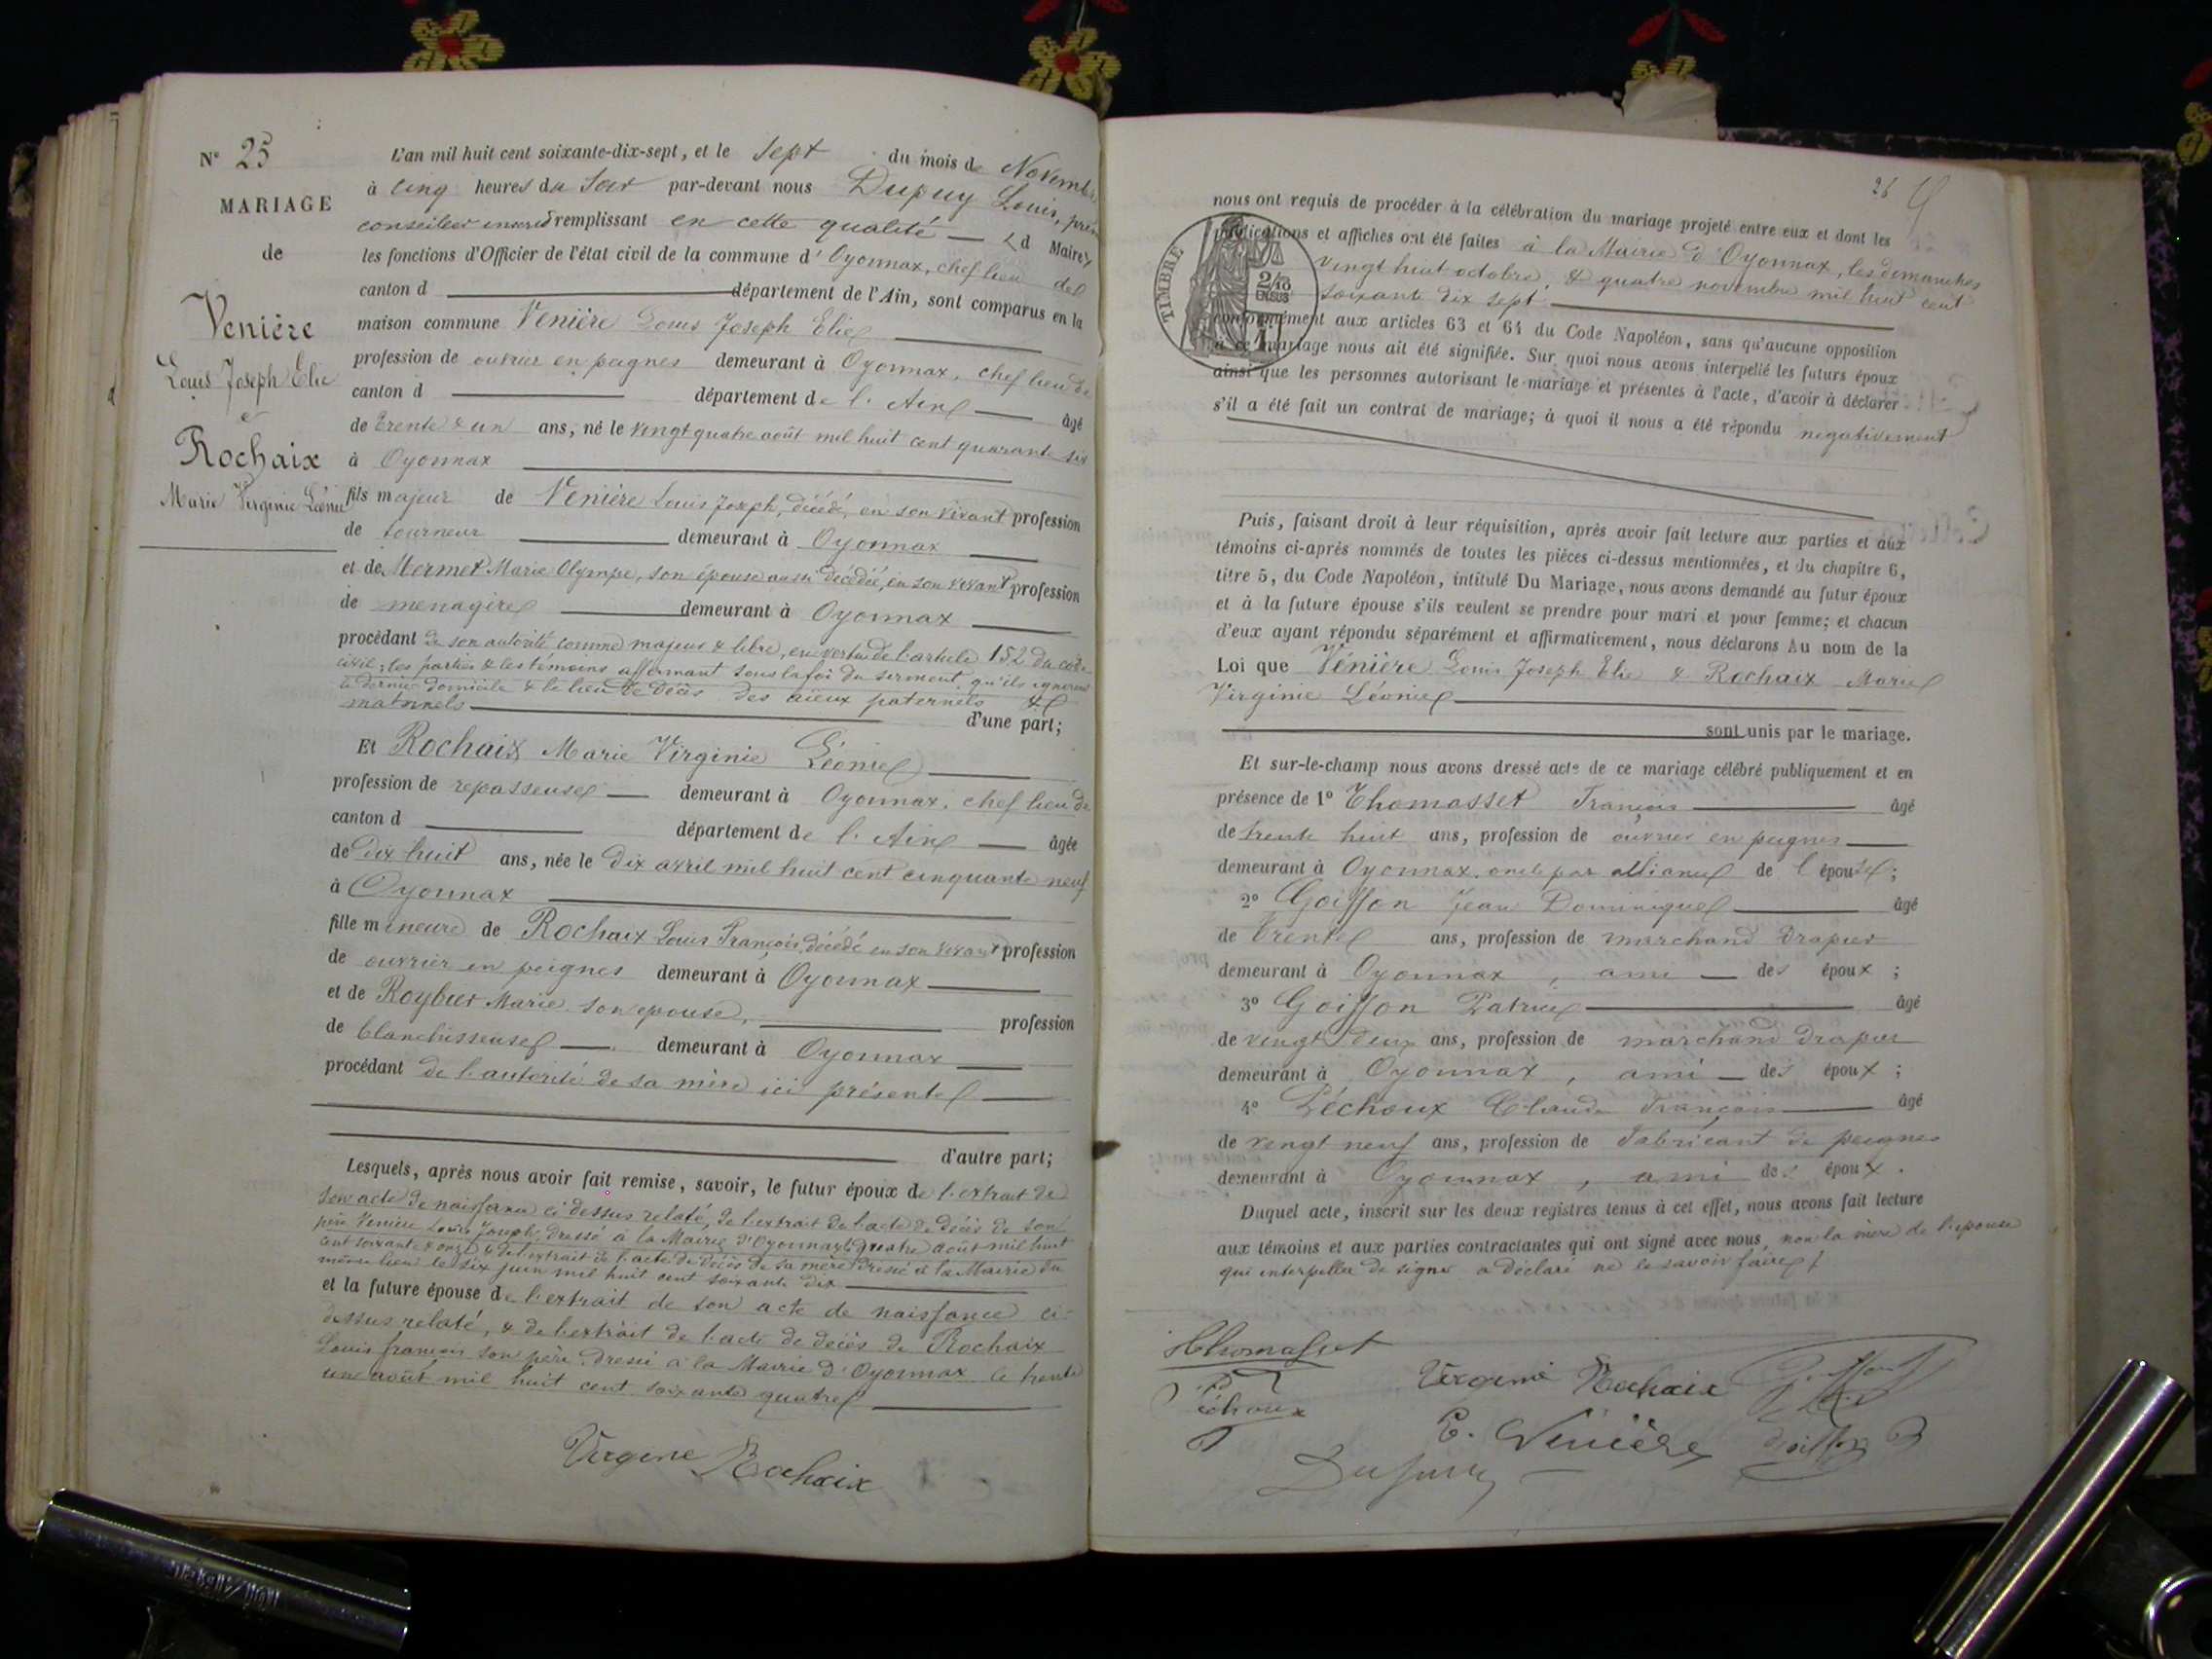 N° 25
MARIAGE
de
Venière
Louis Joseph Elie
et
Rochaix
Marie Virginie Léonie
L'an mil huit cent soixante-dix-sept, et le sept du mois de Novembre
à cinq heures du soir par-devant nous Dupuy Louis,
conseiller remplissant en cette qualité — d Maire
les fonctions d'Officier de l'état civil de la commune d'Oyonnax, chef lieu de
canton d département de l'Ain, sont comparus en la
maison commune Venière Louis Joseph Elie
profession de ouvrier en peignes demeurant à Oyonnax, chef lieu de
canton d département de l'Ain — âgé
de trente & un ans, né le vingt quatre août mil huit cent quarante six
à Oyonnax
fils majeur de Venière Louis Joseph, décédé, en son vivant profession
de tourneur demeurant à Oyonnax
et de Mermet Marie Olympe, son épouse aussi décédée, en son vivant profession
de menagère demeurant à Oyonnax
procédant de son autorité comme majeur & libre, en vertu de l'article 152 du code
civil; les parties & les témoins affirmant sous la foi du serment qu'ils ignorent
le dernier domicile & le lieu de décès des aïeux paternels &
maternels d'une part;
Et Rochaix Marie Virginie Léonie
profession de repasseuse demeurant à Oyonnax, chef lieu de
canton d département de l'Ain — âgée
de dix huit ans, née le dix avril mil huit cent cinquante neuf
à Oyonnax
fille mineure de Rochaix Louis François, décédé en son vivant profession
de ouvrier en peignes demeurant à Oyonnax
et de Roybier Marie son épouse, profession
de blanchisseuse demeurant à Oyonnax
procédant de l'autorité de sa mère ici présente
d'autre part;
Lesquels, après nous avoir fait remise, savoir, le futur époux de l'extrait de
son acte de naissance ci dessus relaté, de l'extrait de l'acte de décès de son
père Venière Louis Joseph, dressé à la Mairie d'Oyonnax le quatre août mil huit
cent soixante & onze & de l'extrait de l'acte de décès de sa mère dressé à la Mairie du
même lieu le six juin mil huit cent soixante dix
et la future épouse de l'extrait de son acte de naissance ci-
dessus relaté, & de l'extrait de l'acte de décès de Rochaix
Louis françois son père dressé à la Mairie d'Oyonnax le trente
un août mil huit cent soixante quatre
Virginie Rochaix
26
nous ont requis de procéder à la célébration du mariage projeté entre eux et dont les
publications et affiches ont été faites à la Mairie d'Oyonnax, les dimanches
vingt huit octobre, & quatre novembre mil huit cent
soixante dix sept
TIMBRE
2/10
EN SUS
conformément aux articles 63 et 64 du Code Napoléon, sans qu'aucune opposition
à ce mariage nous ait été signifiée. Sur quoi nous avons interpellé les futurs époux
ainsi que les personnes autorisant le mariage et présentes à l'acte, d'avoir à déclarer
s'il a été fait un contrat de mariage; à quoi il nous a été répondu négativement
Puis, faisant droit à leur réquisition, après avoir fait lecture aux parties et aux
témoins ci-après nommés de toutes les pièces ci-dessus mentionnées, et du chapitre 6,
titre 5, du Code Napoléon, intitulé Du Mariage, nous avons demandé au futur époux
et à la future épouse s'ils veulent se prendre pour mari et pour femme; et chacun
d'eux ayant répondu séparément et affirmativement, nous déclarons Au nom de la
Loi que Venière Louis Joseph Elie & Rochaix Marie
Virginie Léonie
sont unis par le mariage.
Et sur-le-champ nous avons dressé acte de ce mariage célébré publiquement et en
présence de 1° Thomasset François âgé
de trente huit ans, profession de ouvrier en peignes
demeurant à Oyonnax, oncle par alliance de l'épouse;
2° Goiffon Jean Dominique âgé
de trente ans, profession de marchand drapier
demeurant à Oyonnax, ami des époux;
3° Goiffon Patrice âgé
de vingt deux ans, profession de marchand drapier
demeurant à Oyonnax, ami des époux;
4° Péchoux Claude François âgé
de vingt neuf ans, profession de fabricant de peignes
demeurant à Oyonnax, ami des époux.
Duquel acte, inscrit sur les deux registres tenus à cet effet, nous avons fait lecture
aux témoins et aux parties contractantes qui ont signé avec nous, non la mère de l'épouse
qui interpellée de signer a déclaré ne le savoir faire
Thomasset
Virginie Rochaix
Péchoux
E. Venière
Goiffon
Dupuy